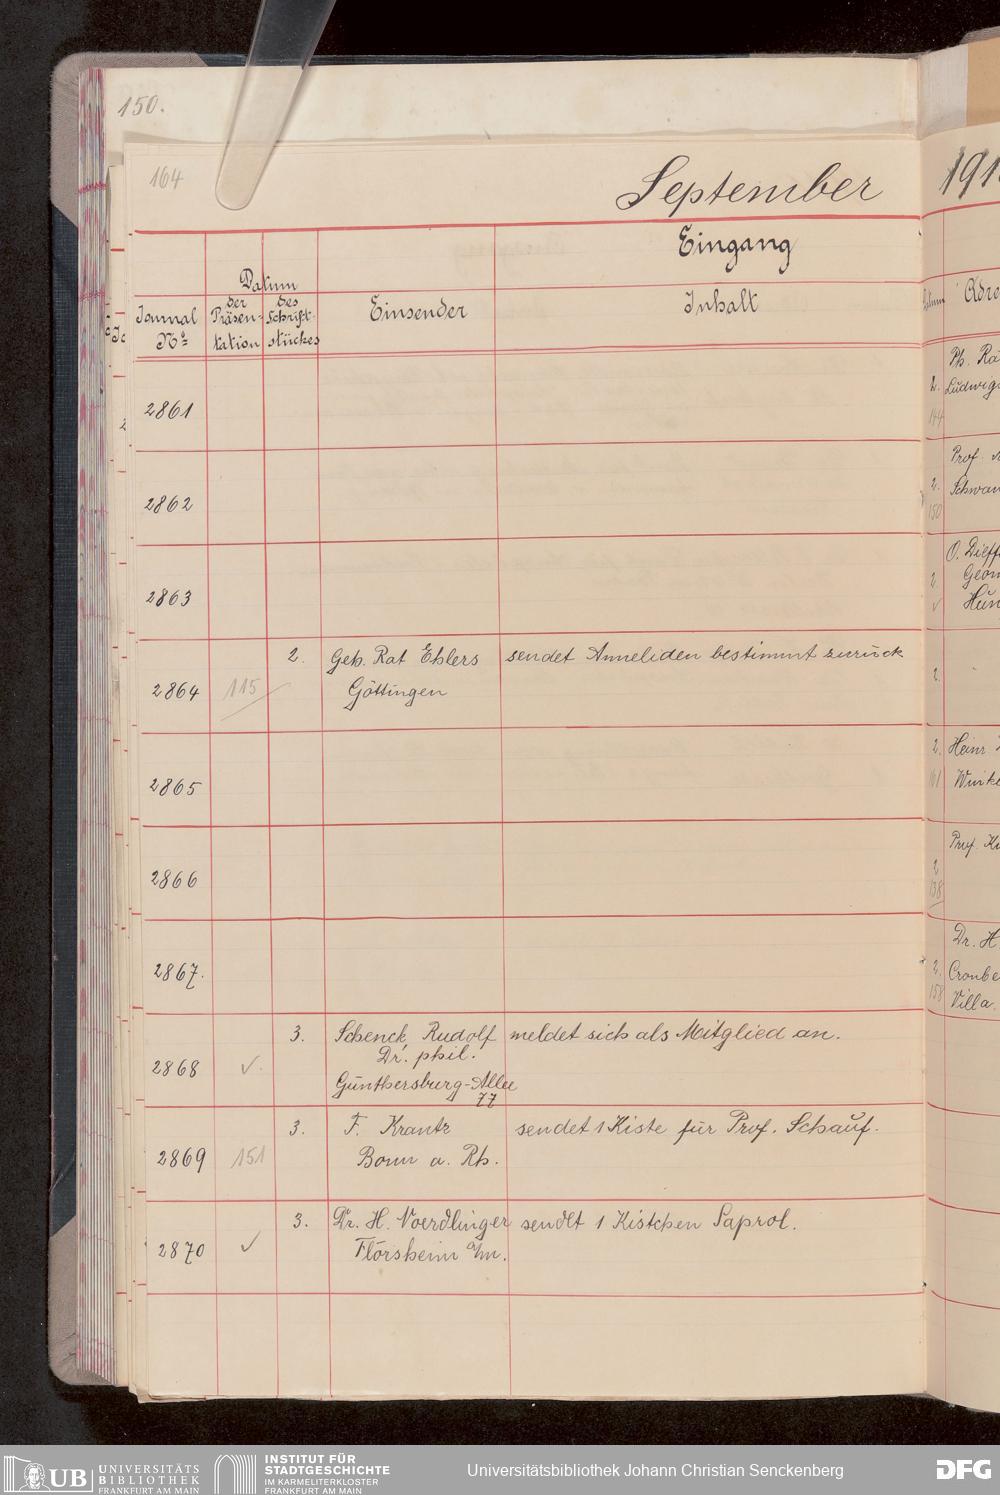 150.
164
September
191
Eingang
Datum
Journal
No
der
Präsen-
tation
des
Schrift-
stückes
Einsender
Inhalt
2861
2862
2863
2864 115 2. Geh. Rat Ehlers sendet Anneliden bestimmt zurück
Göttingen
2865
2866
2867.
2868 3. Schenck, Rudolf meldet sich als Mitglied an.
Dr. phil.
Günthersburg-Allee
77
2869 151 3. F. Krantz sendet 1 Kiste für Prof. Schauf.
Bonn a. Rh.
2870 3. Dr. H. Noerdlinger sendet 1 Kistchen Saprol.
Flörsheim a/m.
Adre
Ph. Ra
2. Ludwigs
144
Prof.
2. Schwan
150
O. Dieff
2. Geom
Hun
2.
2. Heinr
161 Winke
Prof. Ku
2
138
Dr. H.
2. Cronbe
158 Villa
UB UNIVERSITÄTS
BIBLIOTHEK
FRANKFURT AM MAIN
INSTITUT FÜR
STADTGESCHICHTE
IM KARMELITERKLOSTER
FRANKFURT AM MAIN
Universitätsbibliothek Johann Christian Senckenberg
DFG